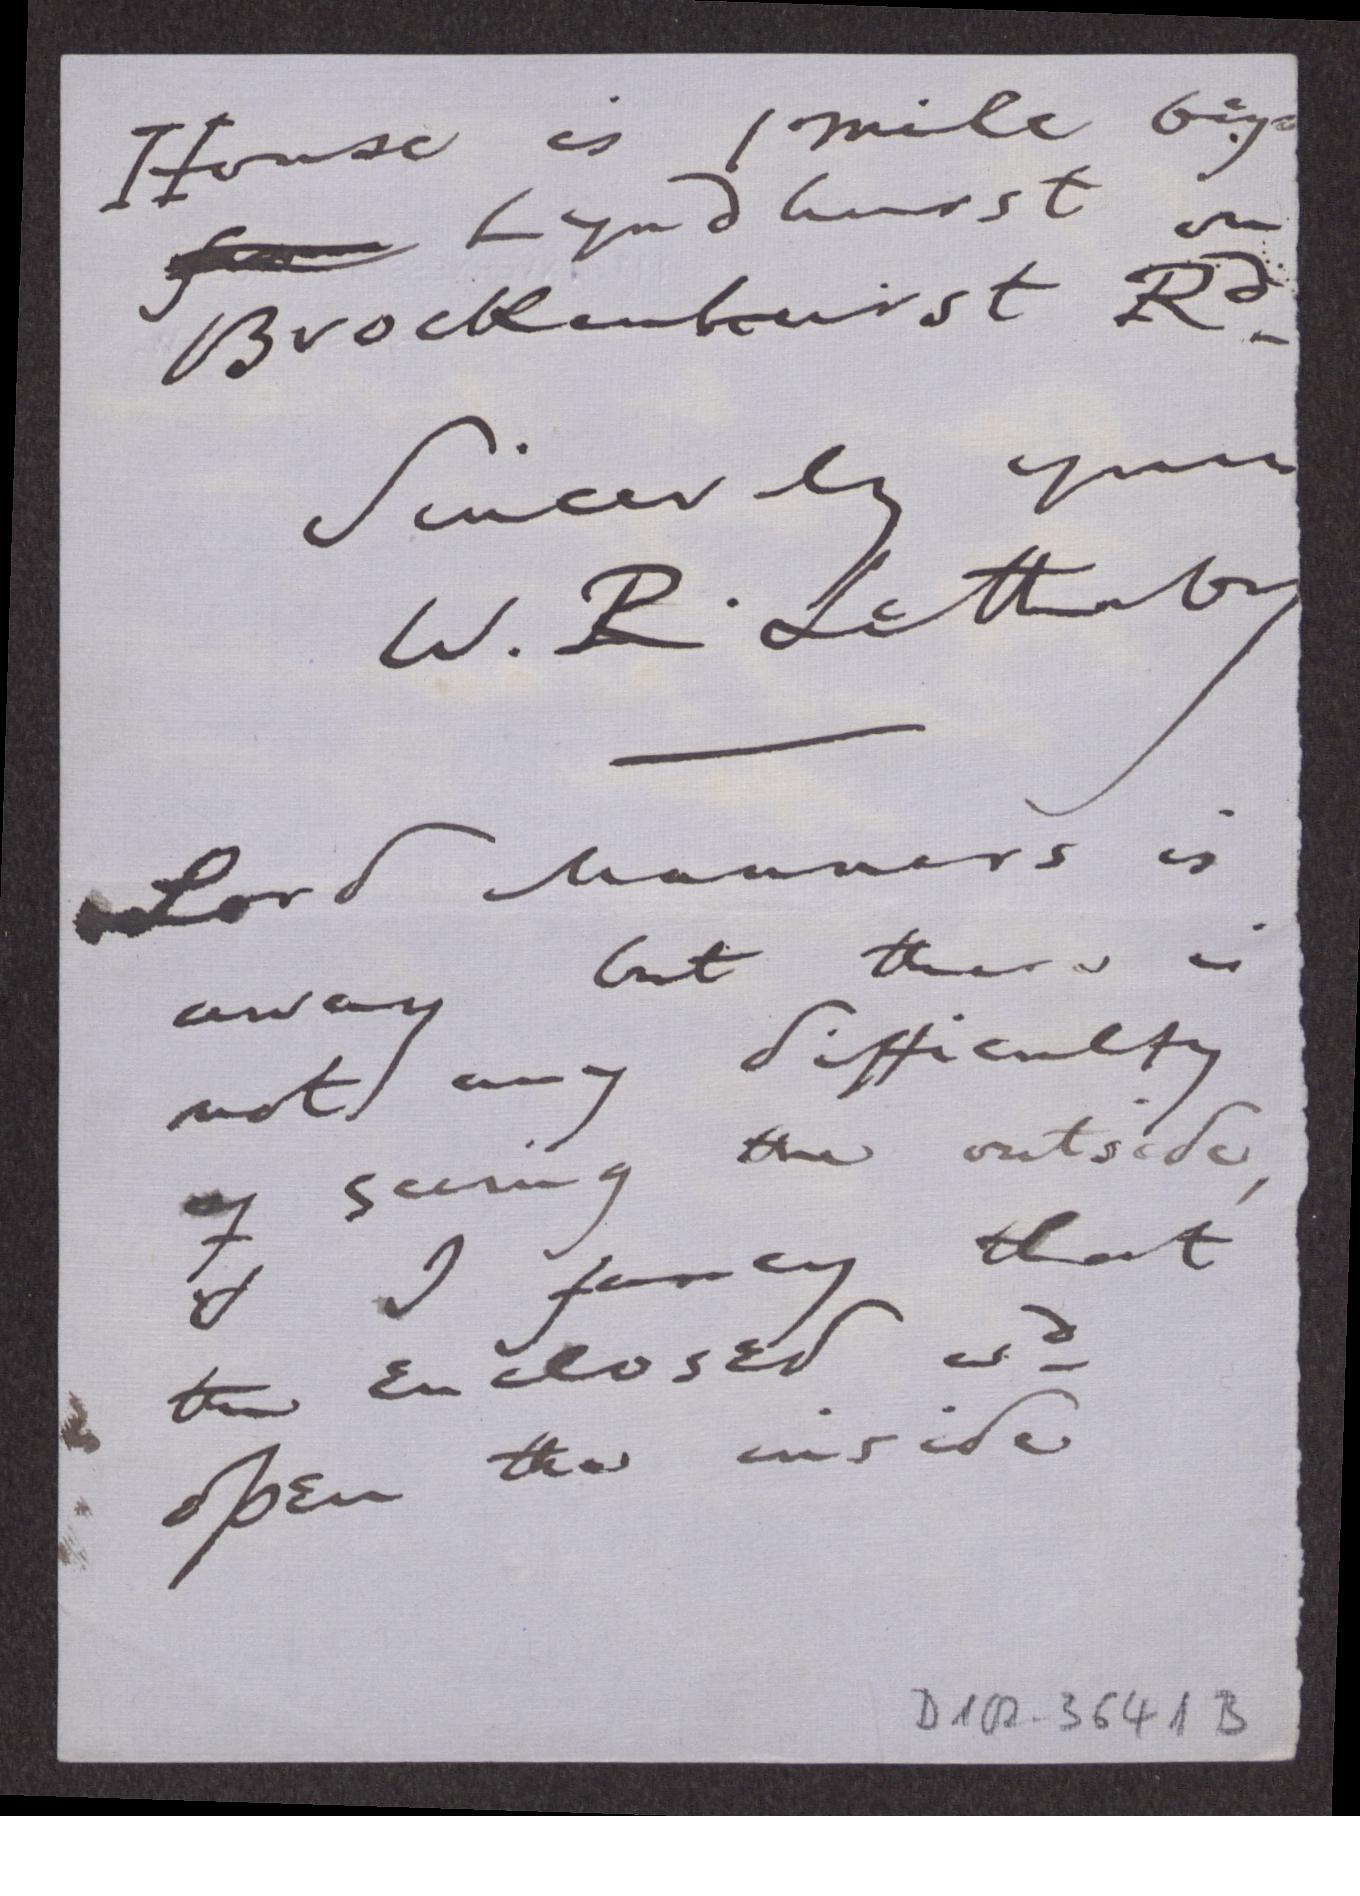 House is 1 mile beyo
from Lyndhurst on
Brockenhurst Rd.
Sincerely yours
W. R. Lethaby
Lord Manners is
away but there is
not any difficulty
of seeing the outside,
& I fancy that
the enclosed wd
open the inside
D102-3641B